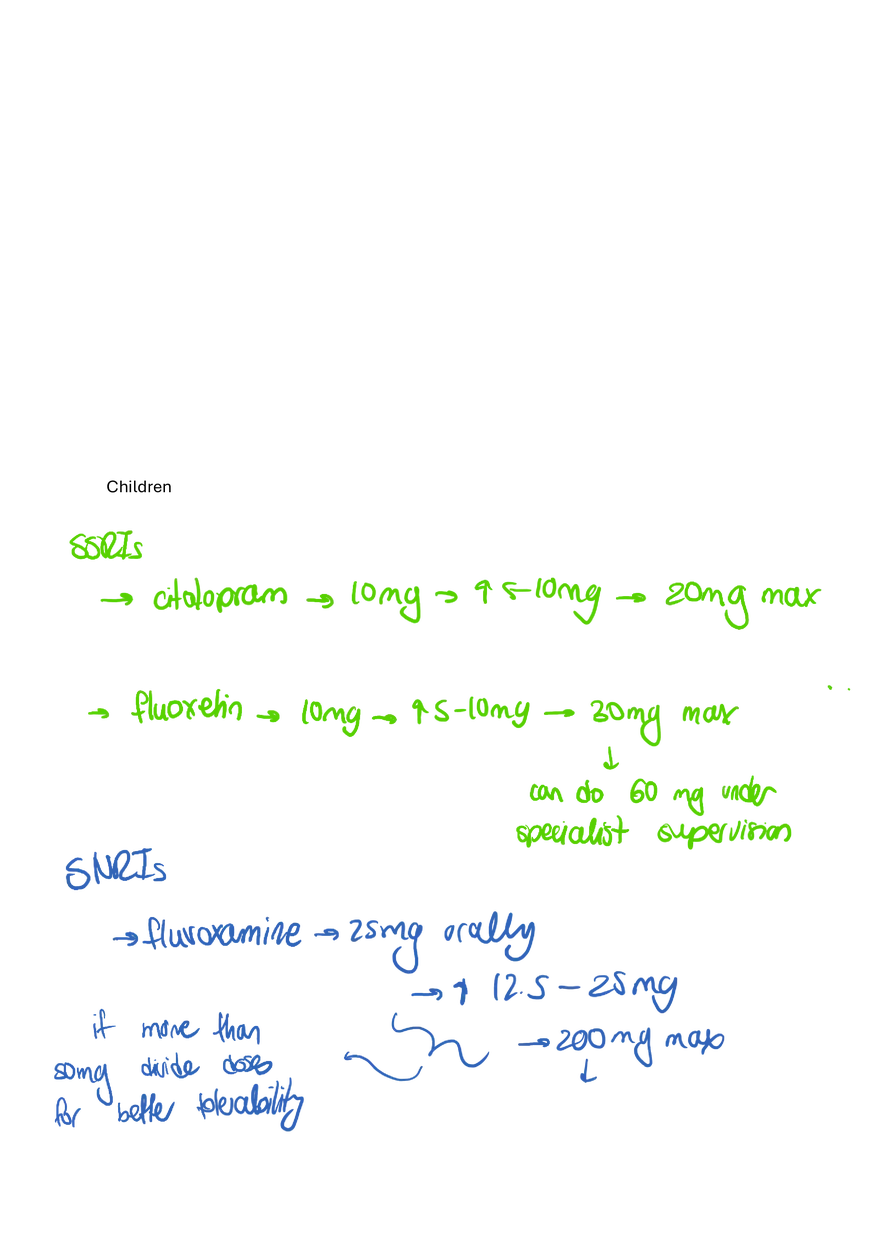 Children
SSRIs
→ citalopram → 10mg → ↑ 5-10mg → 20mg max
→ fluoxetin → 10mg → ↑ 5-10mg → 30mg max
↓
can do 60 mg under
specialist supervision
SNRIs
→ fluvoxamine → 25mg orally
→ ↑ 12.5 - 25mg
→ 200mg max
↓
if more than
50mg divide doses
for better tolerability